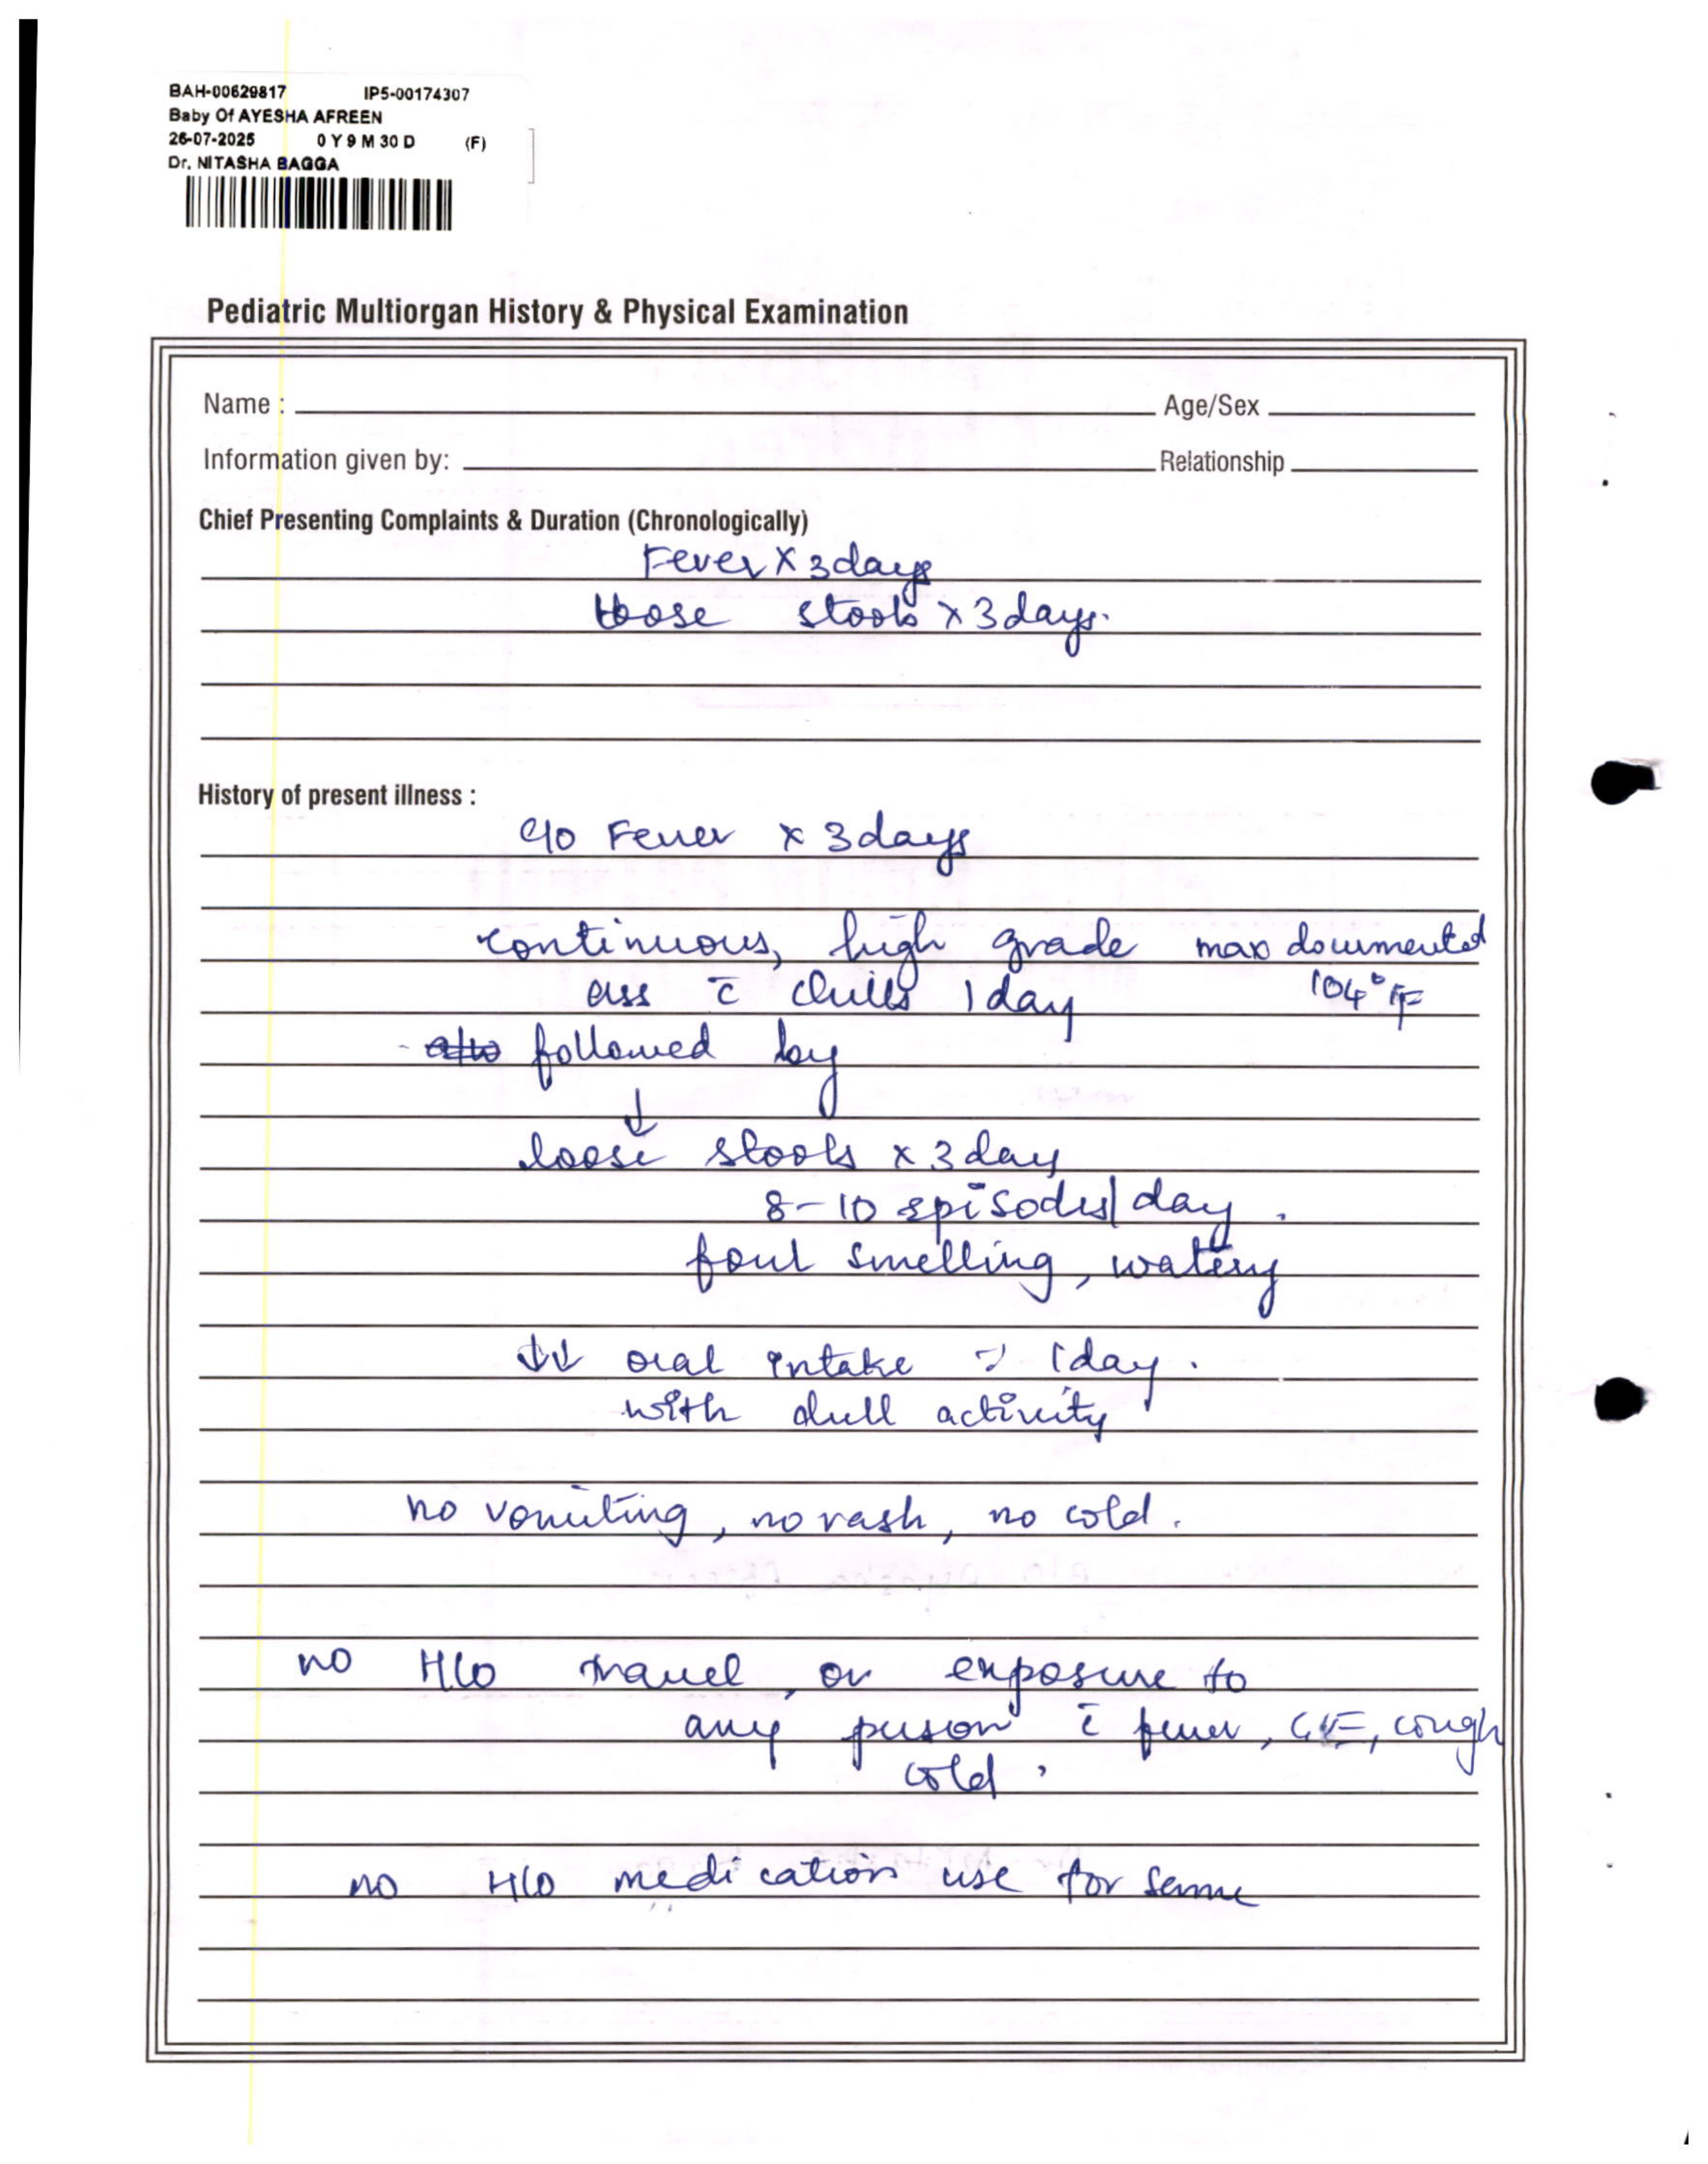 BAH-00629817 IP5-00174307
Baby Of AYESHA AFREEN
26-07-2025 0 Y 9 M 30 D (F)
Dr. NITASHA BAGGA
Pediatric Multiorgan History & Physical Examination
Name : Age/Sex
Information given by: Relationship
Chief Presenting Complaints & Duration (Chronologically)
Fever X 3days
loose stools x 3days.
History of present illness :
c/o Fever x 3days
continuous, high grade max documented
ass c̄ chills 1day 104°F
- a/w followed by
↓
loose stools x 3day
8-10 episodes/day.
foul smelling, watery
↓↓ oral intake 1day.
with dull activity
no vomiting, no rash, no cold.
no H/o travel, or exposure to
any person c̄ fever, cough
cold.
no H/o medication use for same